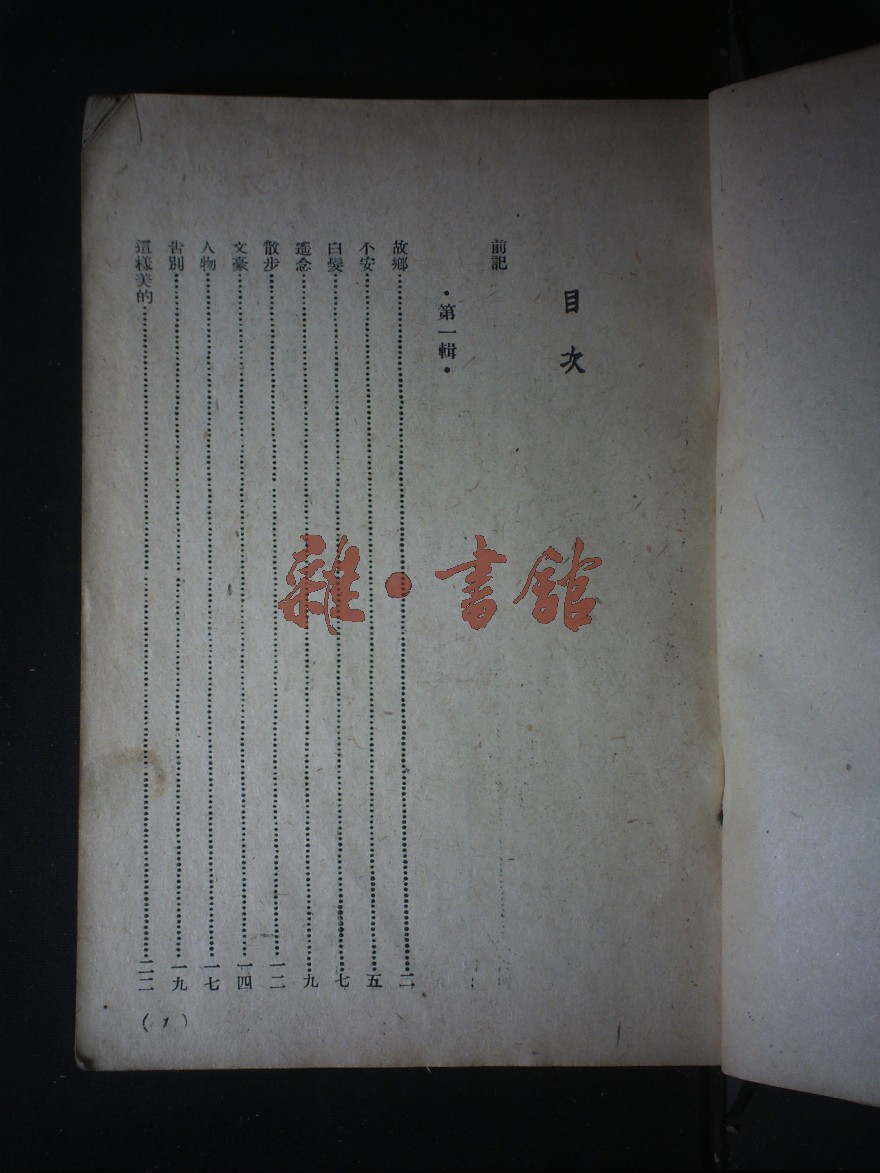 目次
前記
•第一輯•
故鄉……二
不安……五
白髮……七
遙念……九
散步……一二
文豪……一四
人物……一七
告別……一九
這樣美的……二二
(1)
雜•書館